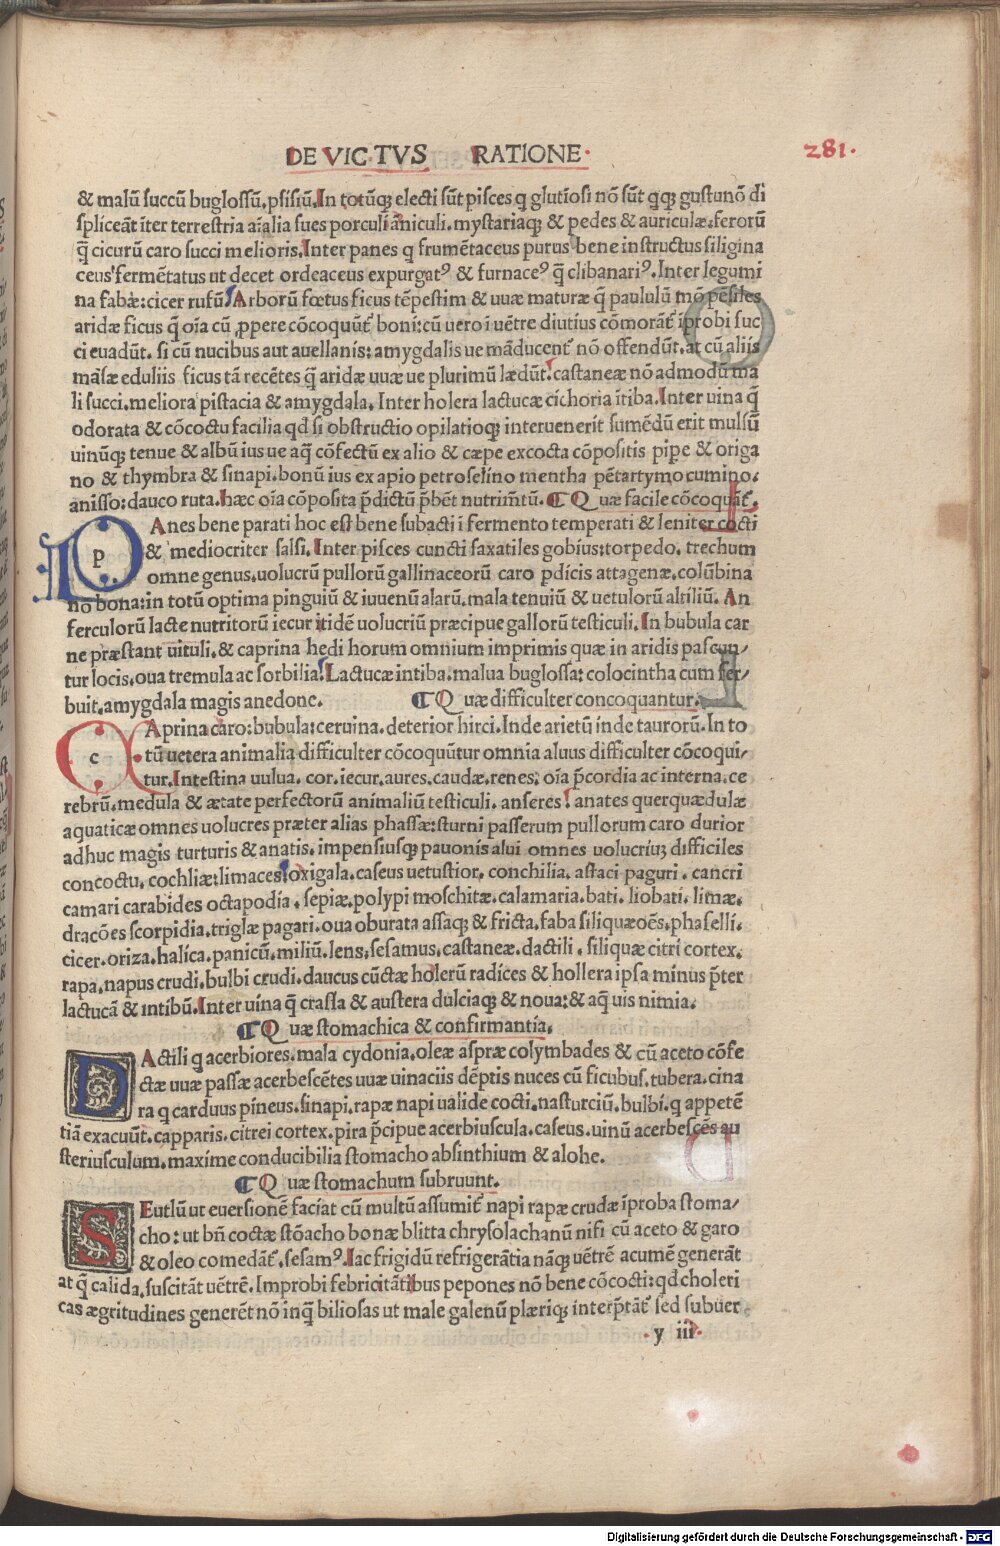 DE VICTVS RATIONE·
281·
& malū succū buglossū.psisiū.In totūq; electi sūt pisces q glutiosi nō sūt qq; gustunō di
spliceāt īter terrestria aīalia sues porculi āniculi.mystariaq; & pedes & auriculæ.ferorū
q̄ cicurū caro succi melioris.Inter panes q frumētaceus purus bene instructus siligina
ceus fermētatus ut decet ordeaceus expurgatꝰ & furnaceꝰ q̄ clibanariꝰ.Inter legumi
na fabæ:cicer rufū.Arborū fœtus ficus tēpestiui & uuæ maturæ q̄ paululū mō pēsiles
aridæ ficus q̄ oīa cū ꝓpere cōcoquūt boni:cū uero ī uētre diutius cōmorāt īprobi suc
ci euadūt. si cū nucibus aut auellanis:amygdalis ue māducent nō offendūt.at cū aliis
māsæ eduliis ficus tā recētes q̄ aridæ uuæ ue plurimū lædūt.castaneæ nō admodū ma
li succi.meliora pistacia & amygdala. Inter holera lactucæ cichoria ītiba.Inter uina q̄
odorata & cōcoctu facilia qd si obstructio opilatioq; interuenerit sumēdū erit mulsū
uinūq; tenue & albū ius ue aq; cōfectū ex alio & cæpe excocta cōpositis pipe & origa
no & thymbra & sinapi.bonū ius ex apio petroselino mentha pētartymo cumino.
anisso:dauco ruta.hæc oīa cōposita p̄dictū p̄bēt nutrim̄tū. ¶ Quæ facile cōcoquāt.
p
Anes bene parati hoc est bene subacti ī fermento temperati & leniter cocti
& mediocriter salsi. Inter pisces cuncti saxatiles gobius:torpedo. trechum
omne genus.uolucrū pullorū gallinaceorū caro pdicis attagenæ.colūbina
nō bona:in totū optima pinguiū & iuuenū alarū.mala tenuiū & uetulorū altiliū. An
serculorū lacte nutritorū iecur itidē uolucriū præcipue gallorū testiculi.In bubula car
ne præstant uituli.& caprina hedi horum omnium imprimis quæ in aridis pascun/
tur locis.oua tremula ac sorbilia.Lactucæ intiba:malua buglossa:colocintha cum fer/
buit.amygdala magis anedone. ¶ Quæ difficulter concoquantur.
c
Aprina caro:bubula:ceruina.deterior hirci.Inde arietū inde taurorū.In to
tū uetera animalia difficulter cōcoquūtur omnia aluus difficulter cōcoqui/
tur.Intestina uulua. cor.iecur.aures.caudæ.renes; oīa p̄cordia ac interna.ce
rebrū.medula & ætate perfectorū animaliū testiculi. anseres! anates querquædulæ
aquaticæ omnes uolucres præter alias phassæ:sturni passerum pullorum caro durior
adhuc magis turturis & anatis. impensiusq; pauonis alui omnes uolucriuȝ difficiles
concoctu. cochliæ:limaces:oxigala.caseus uetustior. conchilia. astaci paguri . cancri
camari carabides octapodia . sepiæ.polypi moschitæ.calamaria.bati. liobati. limæ.
dracōes scorpidia.triglæ pagari.oua oburata assaq; & fricta.faba siliquæ oēs.phaselli.
cicer.oriza.halica.panicū.miliū.lens.sesamus.castaneæ.dactili . siliquæ citri cortex.
rapa.napus crudi.bulbi crudi.daucus cūctæ holerū radices & hollera ipsa minus p̄ter
lactucā & intibū.Inter uina q̄ crassa & austera dulciaq; & noua:& aq; uis nimia.
¶ Quæ stomachica & confirmantia.
D
Actili q acerbiores.mala cydonia.oleæ aspræ colymbades & cū aceto cōfe
ctæ uuæ passæ acerbescētes uuæ uinaciis dēptis nuces cū ficubus.tubera.cina
ra q carduus pineus.sinapi.rapæ napi ualide cocti.nasturciū.bulbi.q appetē
tiā exacuūt.capparis.citrei cortex.pira p̄cipue acerbiuscula.caseus.uinū acerbescēs au
steriusculum.maxime conducibilia stomacho absinthium & alohe.
¶ Quæ stomachum subruunt.
S
Eutlū ut euersionē faciat cū multū assumit napi rapæ crudæ īproba stoma/
cho:ut bn̄ coctæ stōacho bonæ blitta chrysolachanū nisi cū aceto & garo
& oleo comedāt.sesamꝰ.lac frigidū refrigerātia nāq; uētrē acumē generāt
at q̄ calida.suscitāt uētrē.Improbi febricitātibus pepones nō bene cōcocti:qd choleri
cas ægritudines generēt nō inq̄ biliosas ut male galenū plæriq; interp̄tāt sed subuer
·y iii·
Digitalisierung gefördert durch die Deutsche Forschungsgemeinschaft - DFG